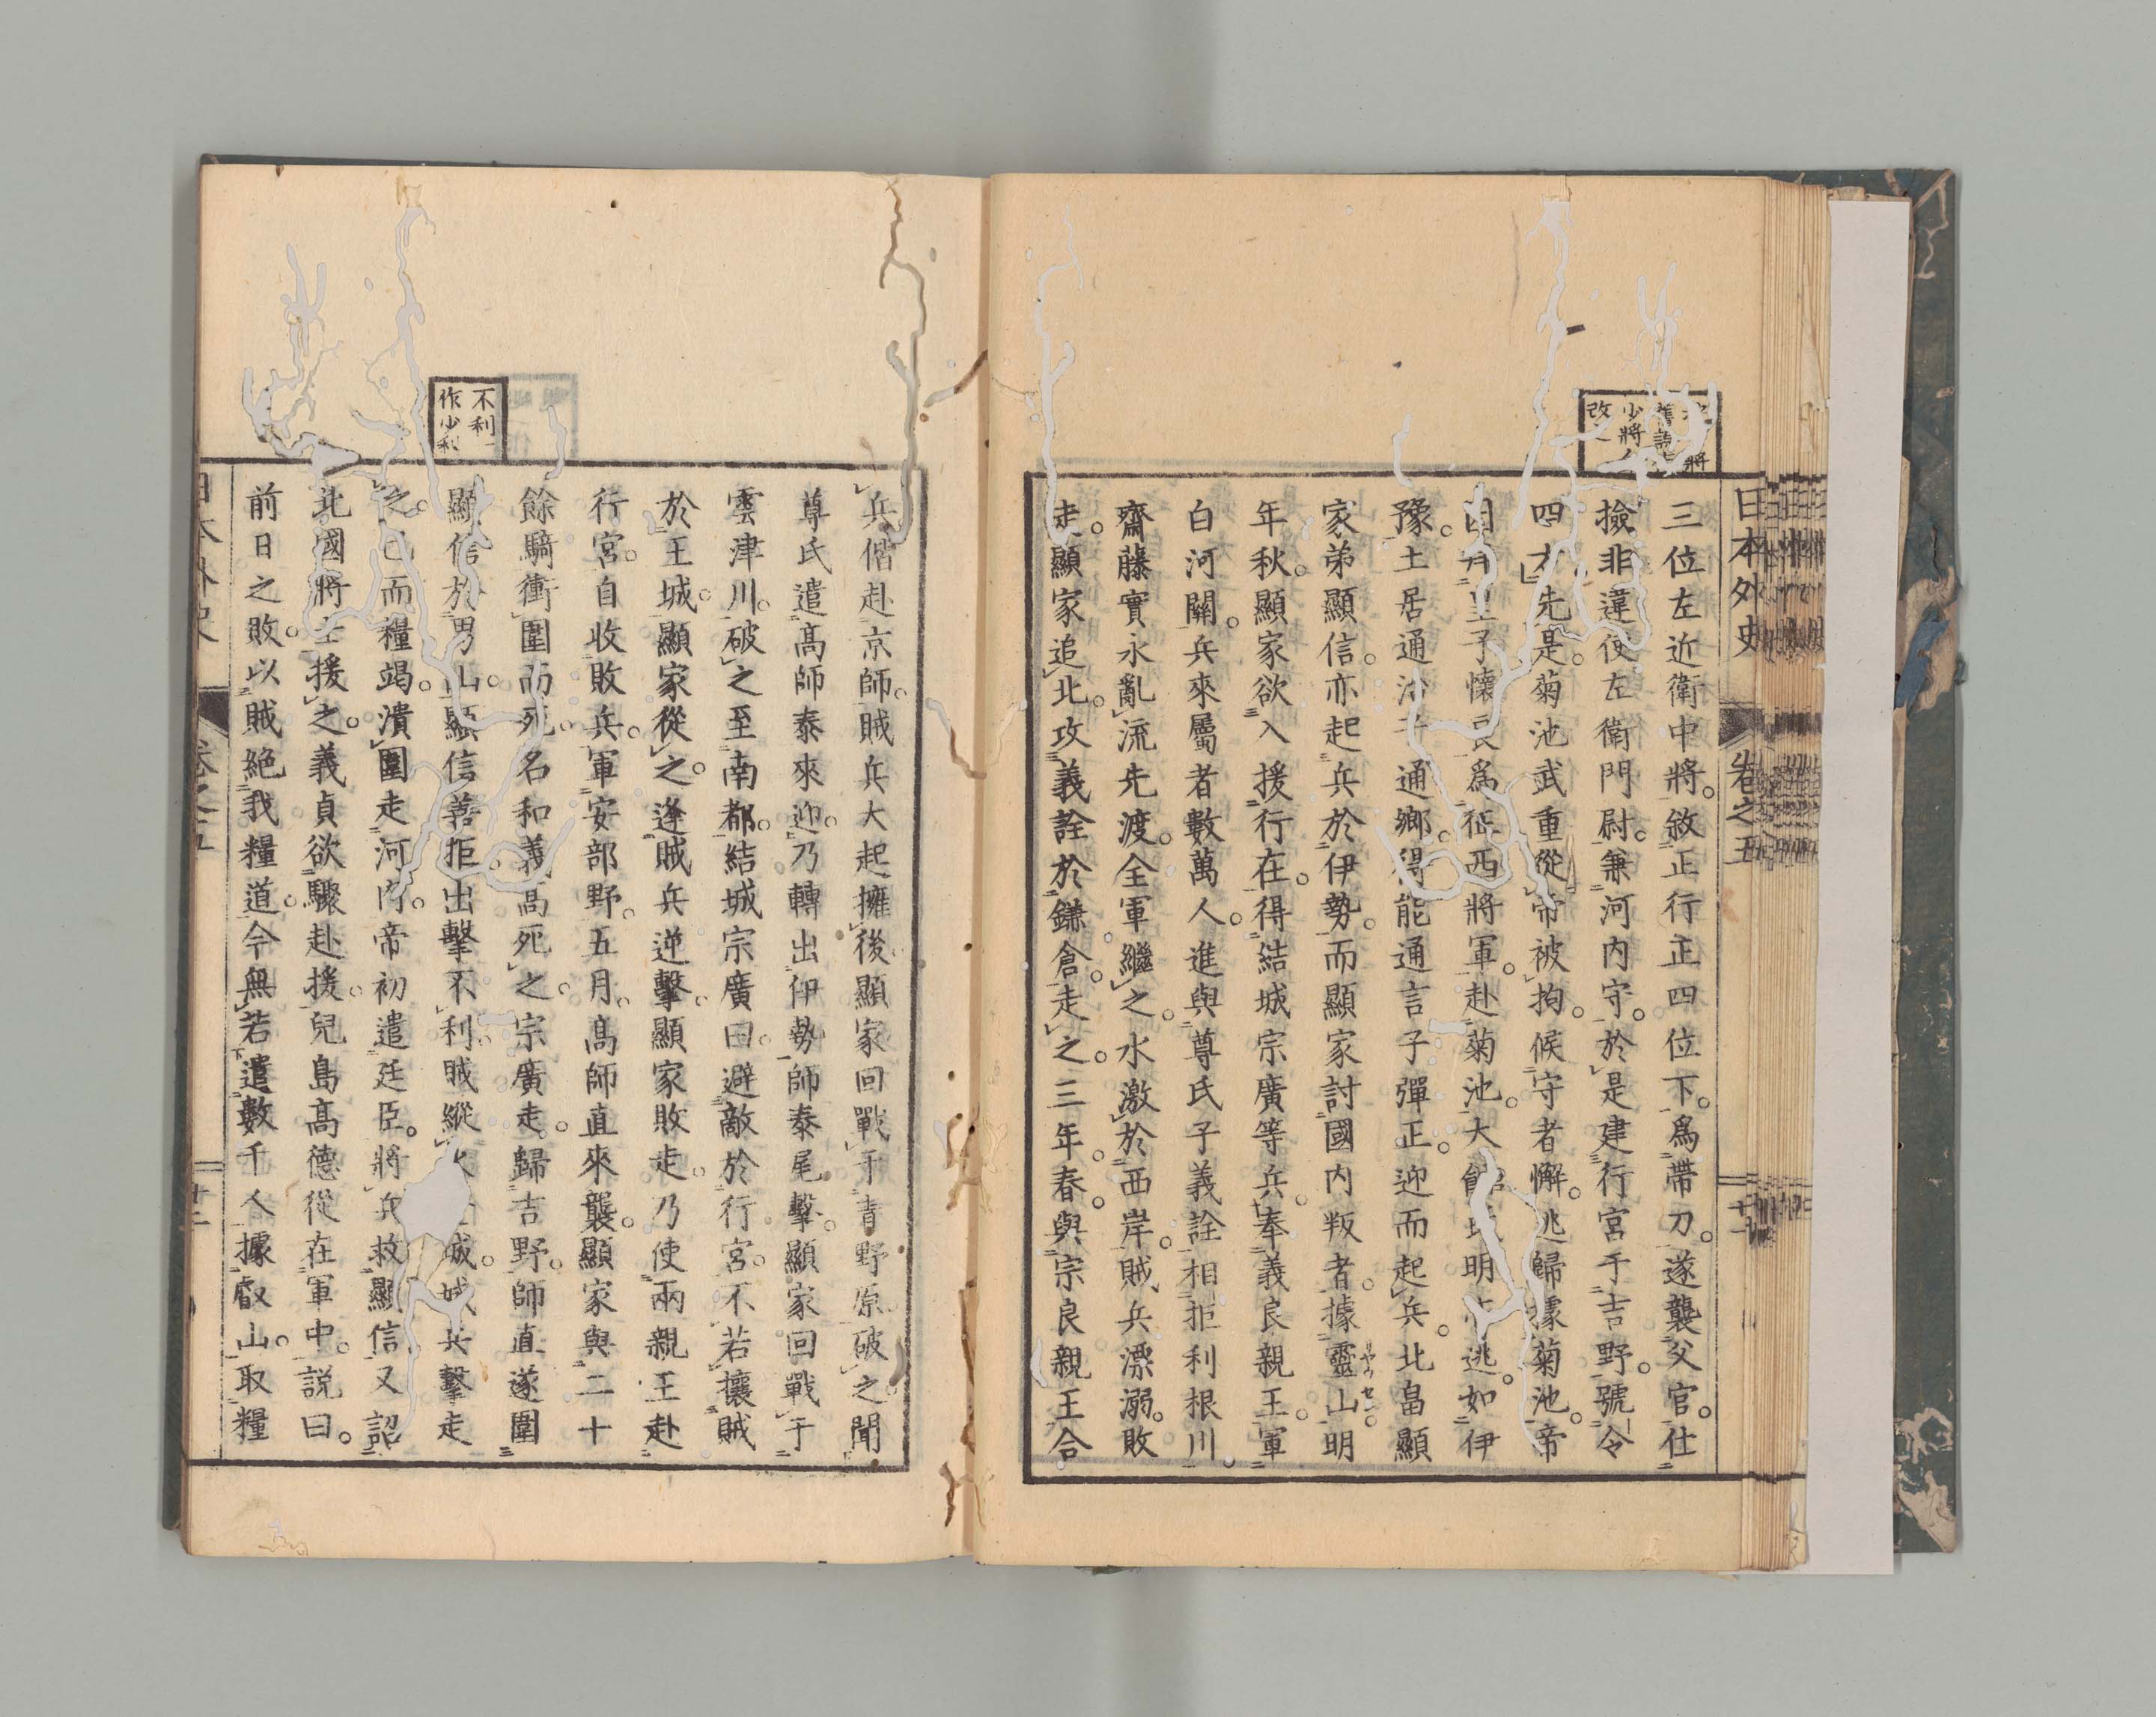 日本外史
卷之五
三位左近衛中將。敘正行正四位下。爲帶刀。遂襲父官。仕
撿非違使左衛門尉。兼河内守。於是建行宮于吉野。號令
四方。先是。菊池武重從帝被拘。候守者懈。逃歸據菊池。帝
皇子懷良爲征西將軍。赴菊池。大館明逃。如伊
豫。土居通子通鄉。得能通言子彈正。迎而起兵。北畠顯
家弟顯信。亦起兵於伊勢。而顯家討國内叛者。據靈山明
年秋。顯家欲入援行在。得結城宗廣等兵。奉義良親王。軍
白河關。兵來屬者數萬人。進與尊氏子義詮相拒利根川。
齋藤實永亂流先渡。全軍繼之。水激於西岸。賊兵漂溺。敗
走。顯家追北。攻義詮於鎌倉。走之。三年春。與宗良親王合
兵偕赴京師。賊兵大起擁後。顯家回戰于青野原破之。聞
尊氏遣高師泰來迎。乃轉出伊勢。師泰尾擊。顯家回戰于
雲津川。破之至南都。結城宗廣曰。避敵於行宮。不若攘賊
於王城。顯家從之。逢賊兵逆擊。顯家敗走。乃使兩親王赴
行宮。自收敗兵。軍安部野。五月。高師直來襲。顯家與二十
餘騎衝圍而死。名和義高死之。宗廣走歸吉野。師直遂圍
顯信於男山。顯信善拒。出擊不利。賊縱城。城兵擊走
之。已而糧竭。潰圍走河内。帝初遣廷臣。將兵救顯信。又詔
北國將士援之。義貞欲驟赴援。兒島高德從在軍中。説曰。
前日之敗。以賊絕我糧道。今無若遣數千人據叡山。取糧
不利一
作少利